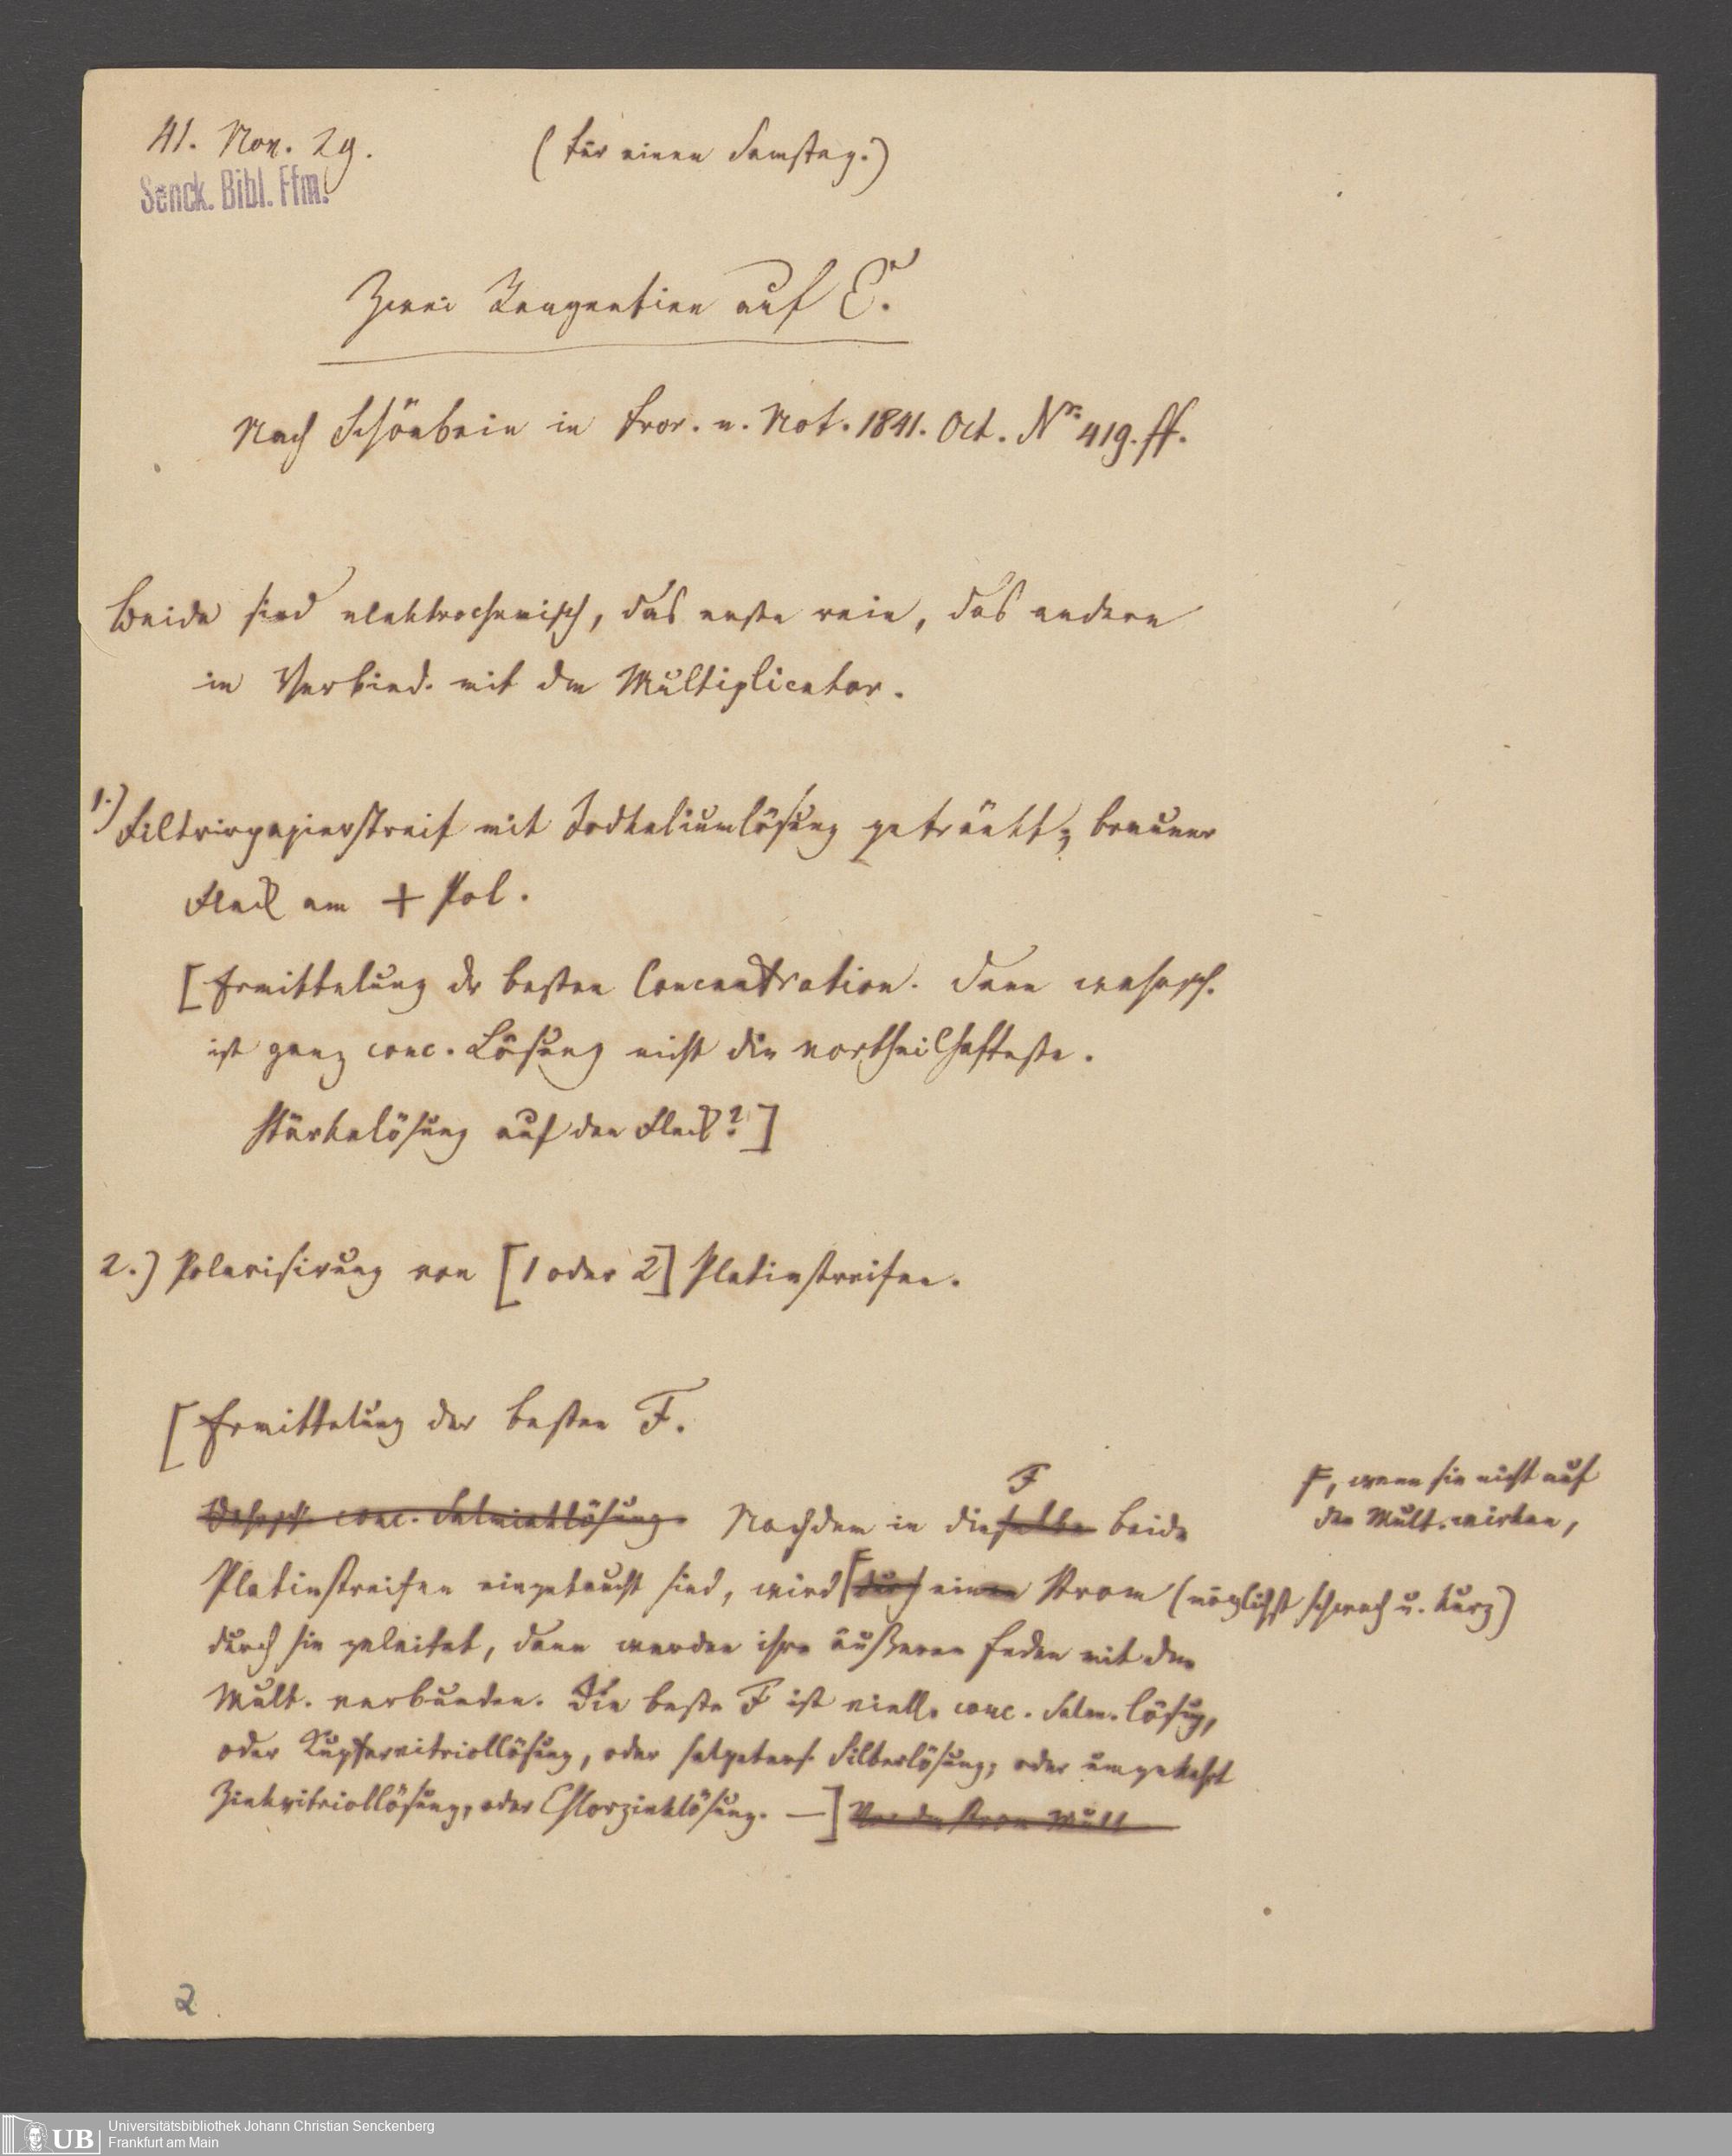 41. Nov. 29.
(Für einen Samstag.)
Senck. Bibl. Ffm.
Zwei Reagentien auf E.
Nach Schönbein in Fror. n. Not. 1841. Oct. Nr. 419. ff.
Beide sind elektrochemisch, das erste rein, das andere
in Verbind. mit dem Multiplicator.
1.) Filtrirpapierstreif mit Jodkaliumlösung getränkt; brauner
Fleck am + Pol.
[Ermittelung der besten Concentration. Denn wahrsch.
ist ganz conc. Lösung nicht die vortheilhafteste.
Stärkelösung auf den Fleck?]
2.) Polarisirung von [1 oder 2] Platinstreifen.
[Ermittelung der besten F.
conc. Salmiaklösung. Nachdem in dieselbe F beide
F, wenn sie nicht auf
den Mult. wirken,
Platinstreifen eingetaucht sind, wird durch einen Strom (möglichst schwach u. kurz)
durch sie geleitet, dann werden ihre äußeren Enden mit dem
Mult. verbunden. Die beste F ist viell. conc. Salm. lösung,
oder Kupfervitriollösung, oder salpeters. Silberlösung; oder umgekehrt
Zinkvitriollösung, oder Chlorzinklösung. —] Mult
2
UB
Universitätsbibliothek Johann Christian Senckenberg
Frankfurt am Main